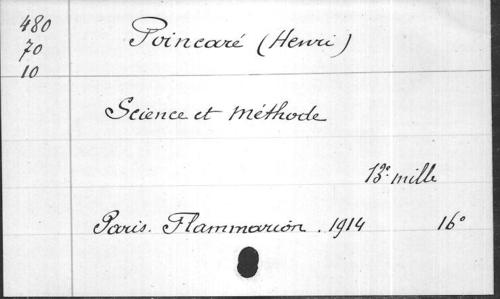 480
70
10
Poincaré (Henri)
Science et Méthode
13e mille
Paris. Flammarion. 1914 16°